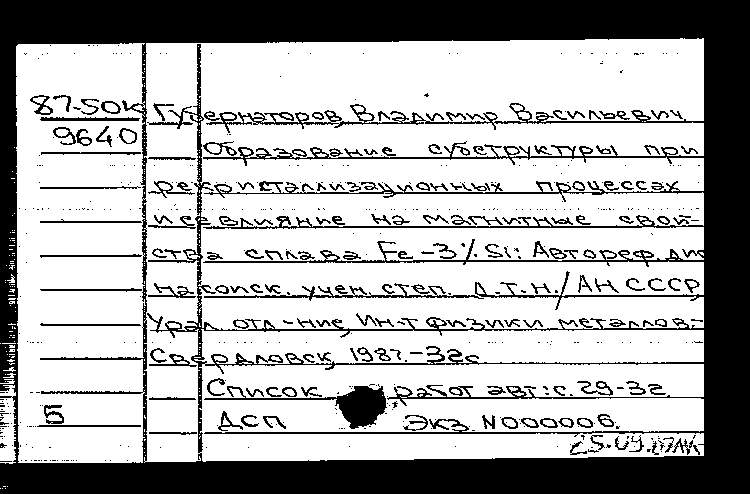 87-50к Губернаторов Владимир Васильевич
9640 Образование субструктуры при
рекристаллизационных процессах
и ее влияние на магнитные свой-
ства сплава Fe-3% Si: Автореф. дис
на соиск. учен. степ. д.т.н./АН СССР,
Урал. отд-ние, Ин-т физики металлов.-
Свердловск, 1987.-32с
Список работ авт.: с. 29-32.
5 ДСП Экз. N000006.
25.09.87